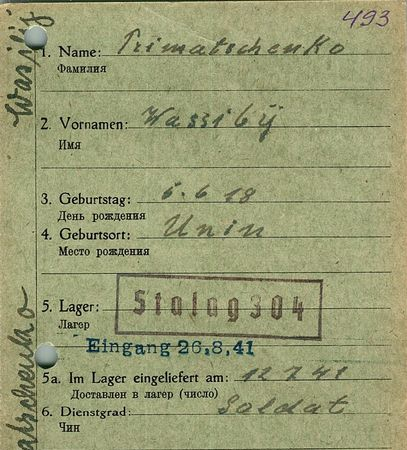 493
1. Name: Trimatschenko
Фамилия
2. Vornamen: Wassilÿ
Имя
3. Geburtstag: 5.6.18
День рождения
4. Geburtsort: Unin
Место рождения
5. Lager: Stalag 304
Лагерь
Eingang 26.8.41
5a. Im Lager eingeliefert am: 12.7.41
Доставлен в лагерь (число)
6. Dienstgrad: Soldat
Чин
Wasilij
atschenko